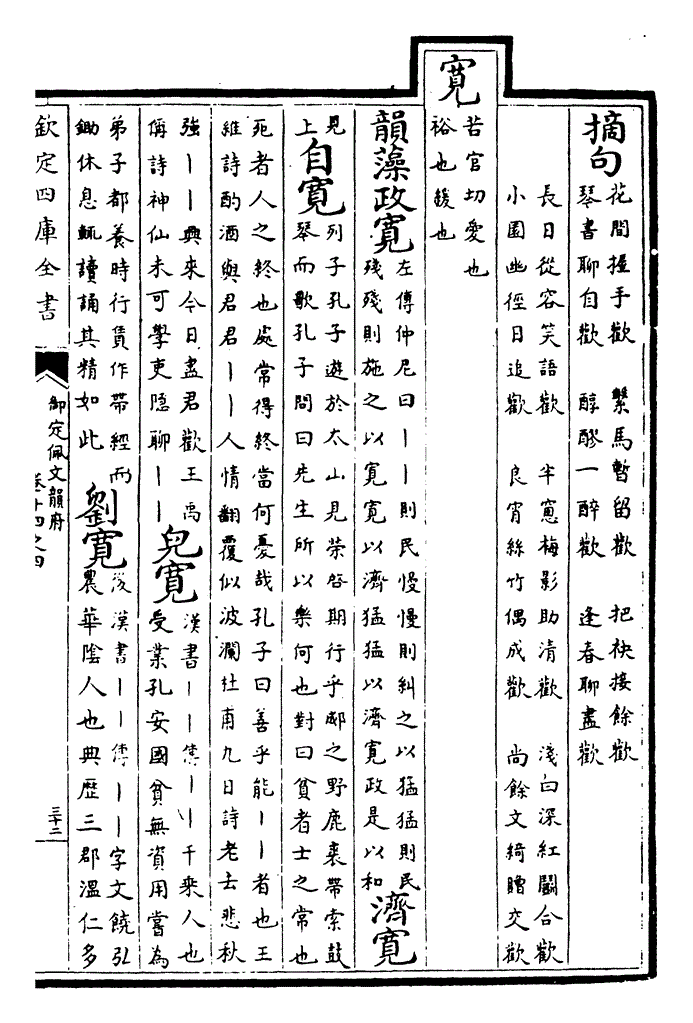 摘句
花間握手歡　繫馬暫留歡　把袂接餘歡
琴書聊自歡　醇醪一醉歡　逢春聊盡歡
長日從容笑語歡　半窻梅影助清歡　淺白深紅鬭合歡
小園幽徑日追歡　良宵絲竹偶成歡　尚餘文綺贈交歡
寛
苦官切愛也
裕也緩也
韻藻政寛
左傳仲尼曰丨丨則民慢慢則糾之以猛猛則民
殘殘則施之以寛寛以濟猛猛以濟寛政是以和
濟寛
見
上
自寛
列子孔子遊於太山見榮啓期行乎郕之野鹿裘帶索鼓
琴而歌孔子問曰先生所以樂何也對曰貧者士之常也
死者人之終也處常得終當何憂哉孔子曰善乎能丨丨者也王
維詩酌酒與君君丨丨人情翻覆似波瀾杜甫九日詩老去悲秋
強丨丨興來今日盡君歡王禹
偁詩神仙未可學吏隱聊丨丨
兒寛
漢書丨丨傳丨丨千乘人也
受業孔安國貧無資用嘗為
弟子都養時行賃作帶經而
鋤休息輒讀誦其精如此
劉寛
後漢書丨丨傳丨丨字文饒弘
農華陰人也典歴三郡溫仁多
欽定四庫全書
御定佩文韻府
卷十四之四
三十二